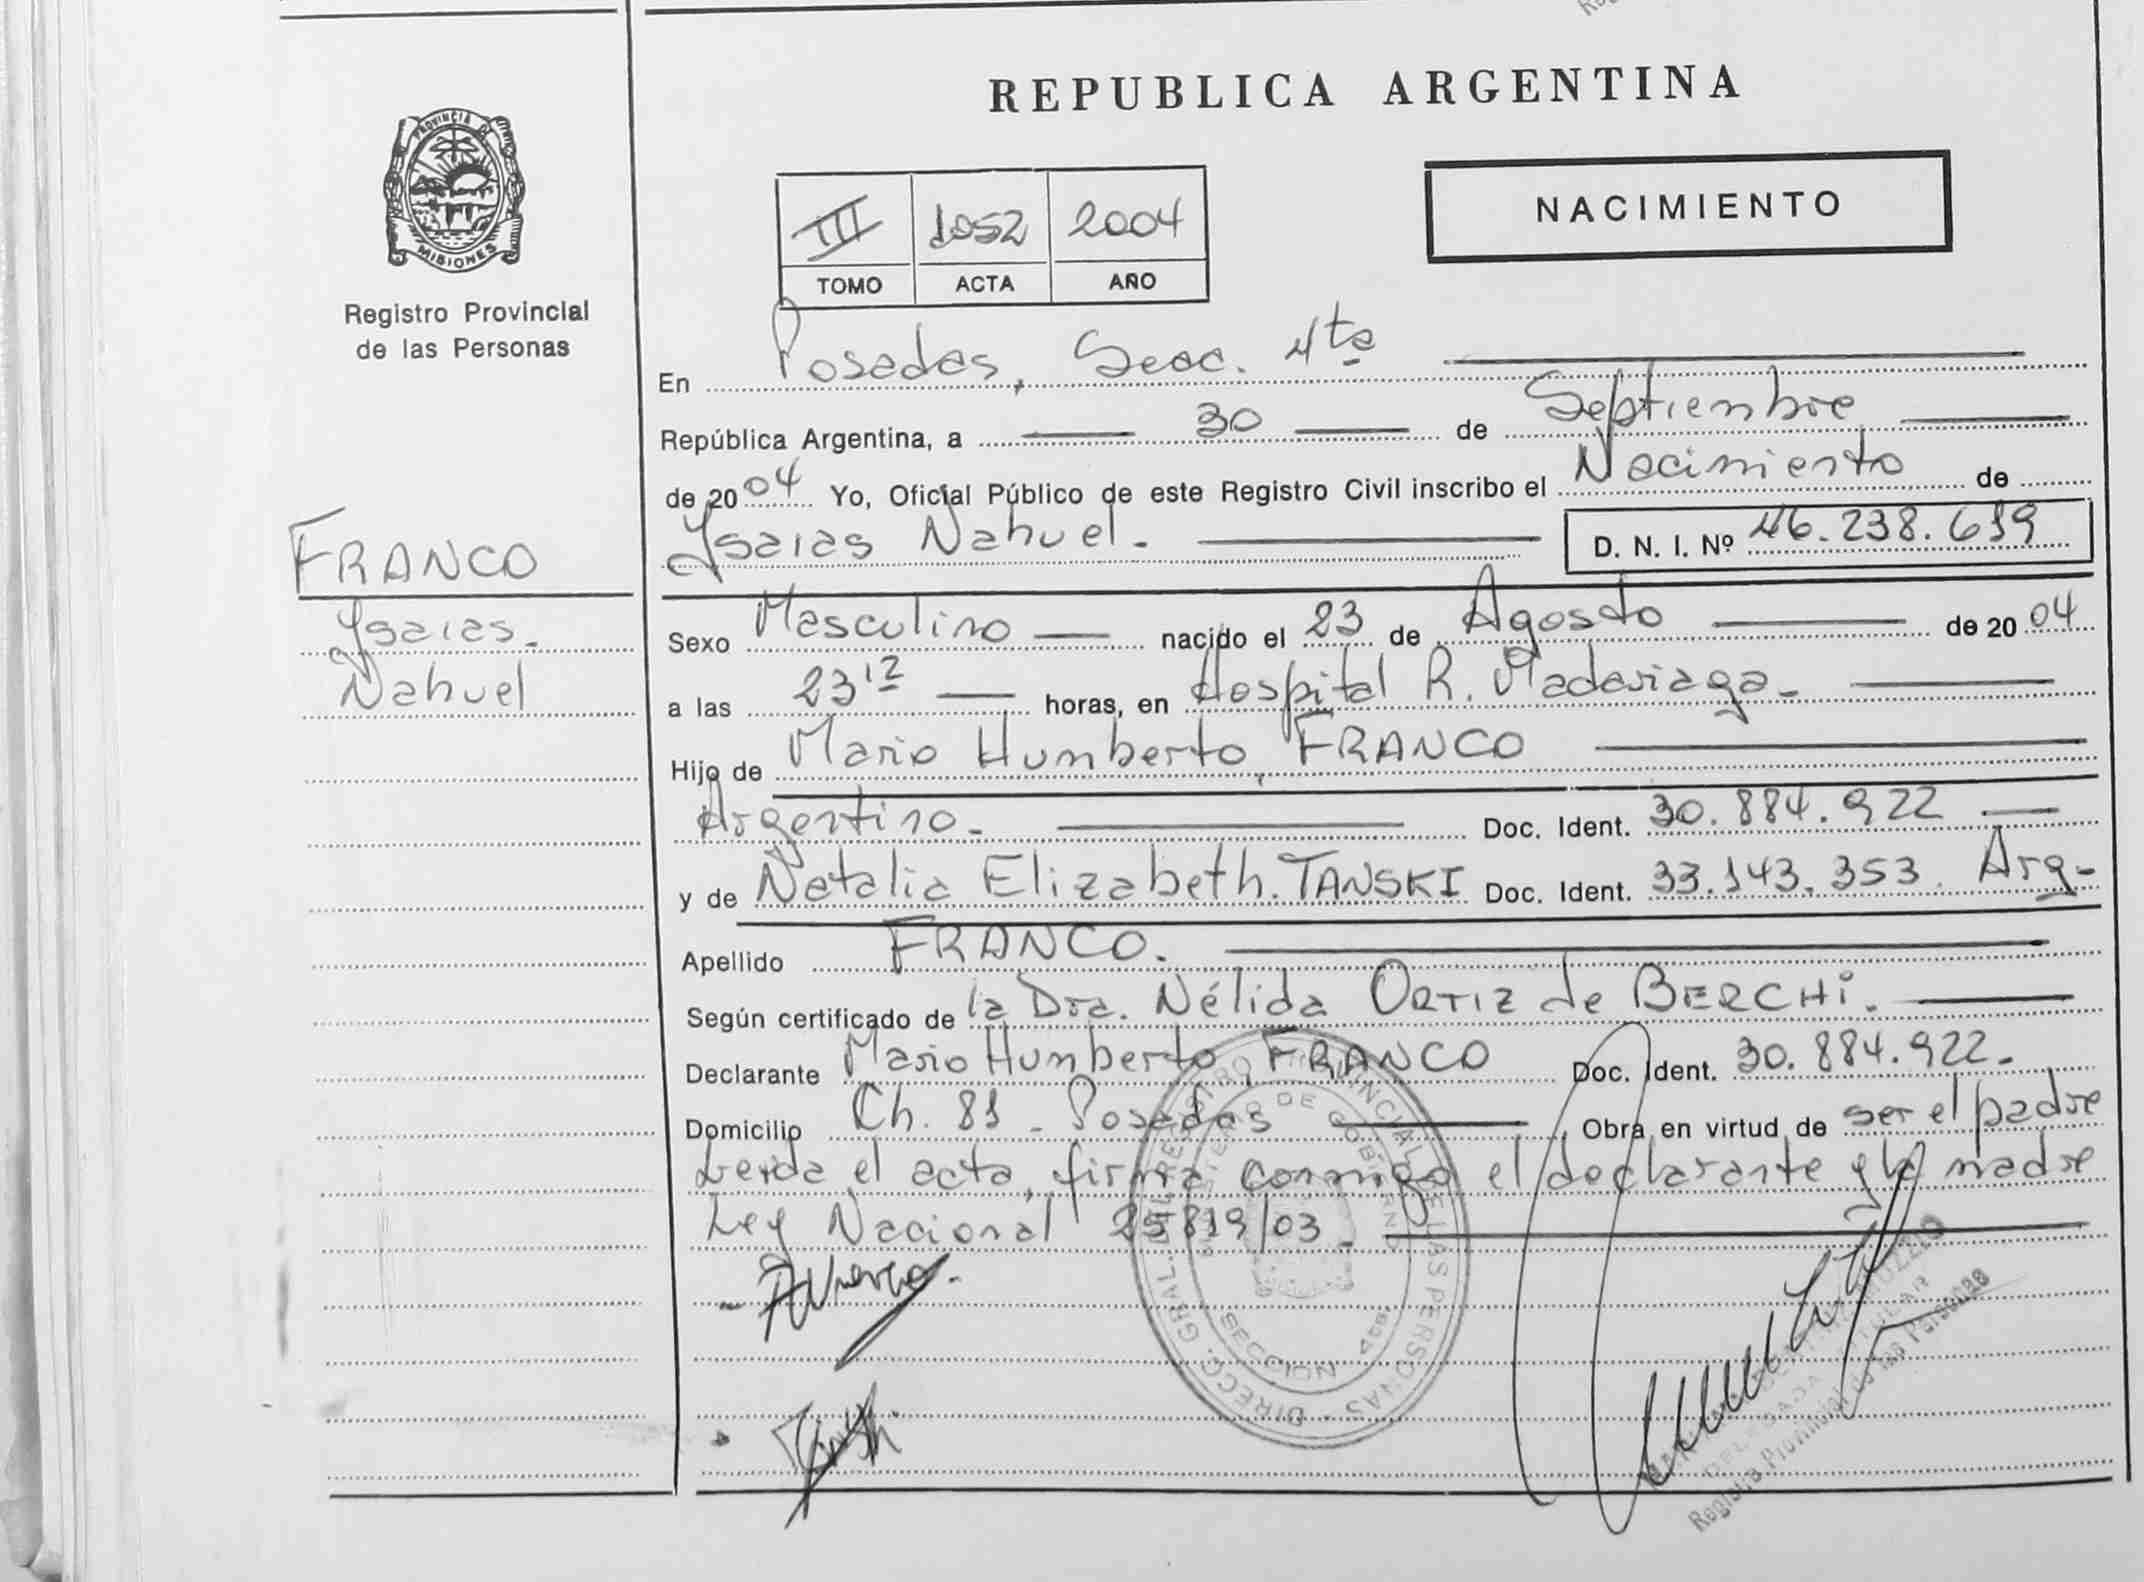 REPUBLICA ARGENTINA
PROVINCIA DE
MISIONES
Registro Provincial
de las Personas
NACIMIENTO
III 1052 2004
TOMO ACTA AÑO
En Posadas, Secc. 4ta
República Argentina, a 30 de Septiembre
de 2004 Yo, Oficial Público de este Registro Civil inscribo el Nacimiento de
Ysaias Nahuel. D. N. I. Nº 46.238.619
FRANCO
Ysaias
Nahuel
Sexo Masculino nacido el 23 de Agosto de 2004
a las 23 12 horas, en Hospital R. Madariaga
Hijo de Mario Humberto, FRANCO
Argentino Doc. Ident. 30.884.922
y de Natalia Elizabeth. TANSKI Doc. Ident. 33.143.353. Arg
Apellido FRANCO.
Según certificado de la Dra. Nélida ORTIZ de BERCHI.
Declarante Mario Humberto, FRANCO Doc. Ident. 30.884.922
Domicilio Ch. 81 - Posadas Obra en virtud de ser el padre
Leida el acta, firma conmigo el declarante y la madre
Ley Nacional 25819/03
DIRECC. GRAL. DEL REGISTRO PROVINCIAL DE LAS PERSONAS
MINISTERIO DE GOBIERNO
SECCION 4ta.
DELEGADA TITULAR
Registro Provincial de las Personas